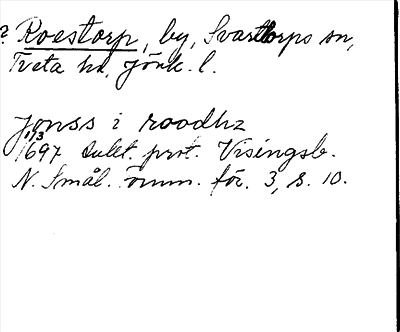 ? Roestorp, by, Svarttorps sn,
Tveta hd, Jönk. l.
Jonss i roodhz
17/3
1697 Aukt. prot. Visingsb.
N. Smål. ömm. för. 3, s. 10.